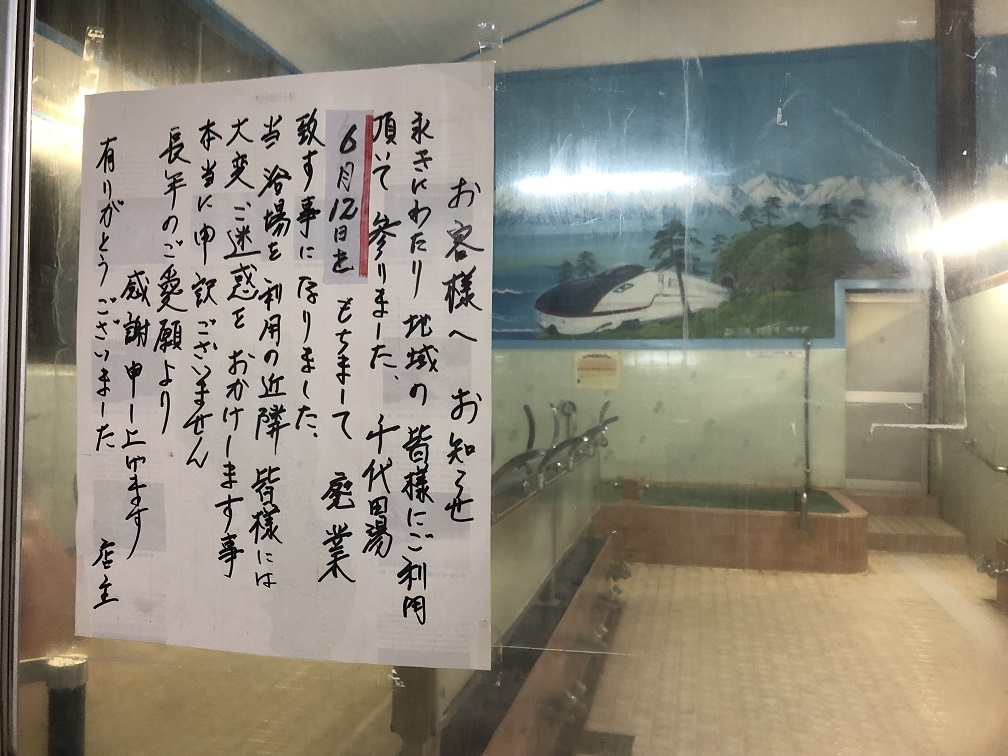 お客様へ お知らせ
永きにわたり 地域の 皆様にご利用
頂いて 参りました、 千代田湯
6月12日を もちまして 廃業
致す事に なりました、
当 浴場を 利用の 近隣 皆様には
大変 ご迷惑を おかけします事
本当に 申訳ございません
長年の ご愛願より
感謝申し上げます
有りがとうございました 店主